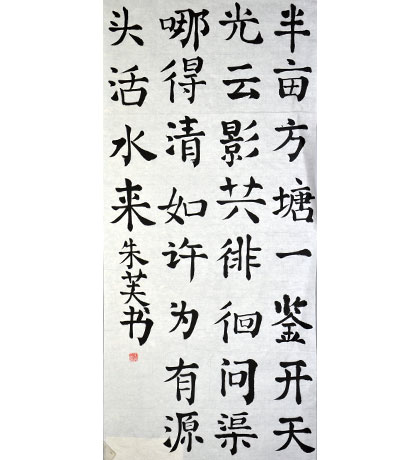 半亩方塘一鉴开天
光云影共徘徊问渠
哪得清如许为有源
头活水来朱芙书